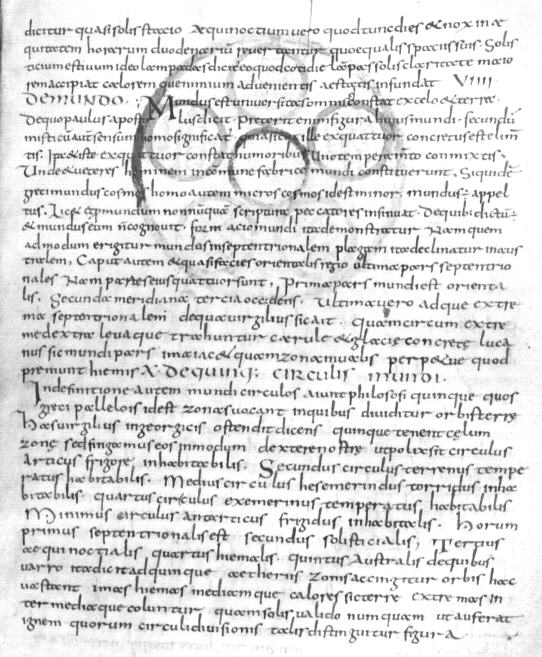 dicitur quasi solis statio Aequinoctium vero quod tunc dies & nox in ae
quitatem horarum duodenarum revertantur quoe qualis spatiis suis. Solis
ticium estivum ideo lampadas dicitur eo quod ex eo die lampas solis claritate maio
rem accipiat calorem que nimium advenientis aestatis infundat VIIII
DE MUNDO. Mundus est universitas omnis constat ex celo & terra
De quo paulus apostolus dicit Preterit enim figura huius mundi. secundū
misticū aut sensum homo significat quia sicut ille ex quattuor concretus est elim̄
tis. Ita & iste ex quattuor constat humoribus uno temperam̄to conmixtis.
Unde & veteres hominem in comune fabrice mundi constituerunt, Siquidē
greci mundus cosmos homo autem micros cosmos id est minor mundus appel
tus. Lic& per mundum nonnumquā scriptura peccatores insinuat. De quib: dictū
& mundus eum n̄ cognovit. formatio mundi ita demonstratur Nam quem
admodum erigitur mundus in septentrionalem plagam ita declinatur in aus
tralem, Caput autem & quasi facies orientalis regio ultima pars septentrio
nales Nam partes eius quattuor sunt, Prima pars mundi est orienta
lis. Secunda meridiana tercia occidens. Ultima vero adque extre
ma septentrionalem de qua virgilius sic ait. Quam circum extre
me dextra leva que trahuntur cerule & glacie concrete luca
nus sic mundi pars ima iac& quam zona nivalis perp&ue quod
premunt hiemis X. DE QUINQ: CIRCULIS MUNDI.
In definitione autem mundi circulos aiunt philosofi quinque quos
greci parallelois id est zonas vocant in quibus dividitur orbis terre
Has virgilius in georgicis ostendit dicens quinque tenent celum
zone sed fingamus eos in modum dextere nostre ut polix sit circulus
Articus frigore inhabitabilis. Secundus circulus terrenus tempe
ratus habitabilis. Medius circulus hesemerindus torridus inha
bitabilis. quartus circulus exemerinus temperatus, habitabilis
Minimus circulus antarticus frigidus inhabitalis. Horum
primus septentrionalis est secundus solisticialis, Tertius
aequinoctialis, quartus hiemalis. quintus Australis de quibus
varro ita dicit ad quinque aetheriis zonis accingitur orbis hac
vastant imas hiemas mediamque calores sic terre extremas in
ter mediaque coluntur quam solis valido numquam ut auferat
ignem quorum circuli divisionis talis distinguitur figura